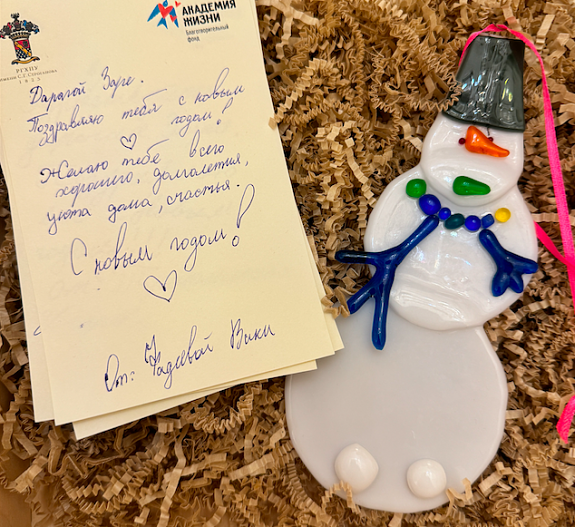 АКАДЕМИЯ
ЖИЗНИ
Благотворительный
фонд
РГХПУ
имени С.Г. Строганова
1825
Дарагой Заре.
Поздравляю тебя с новым
годом!
Желаю тебе всего
хорошего, долголетия,
уюта дома, счастья.
С новым годом!
От: Фадеевой Вики